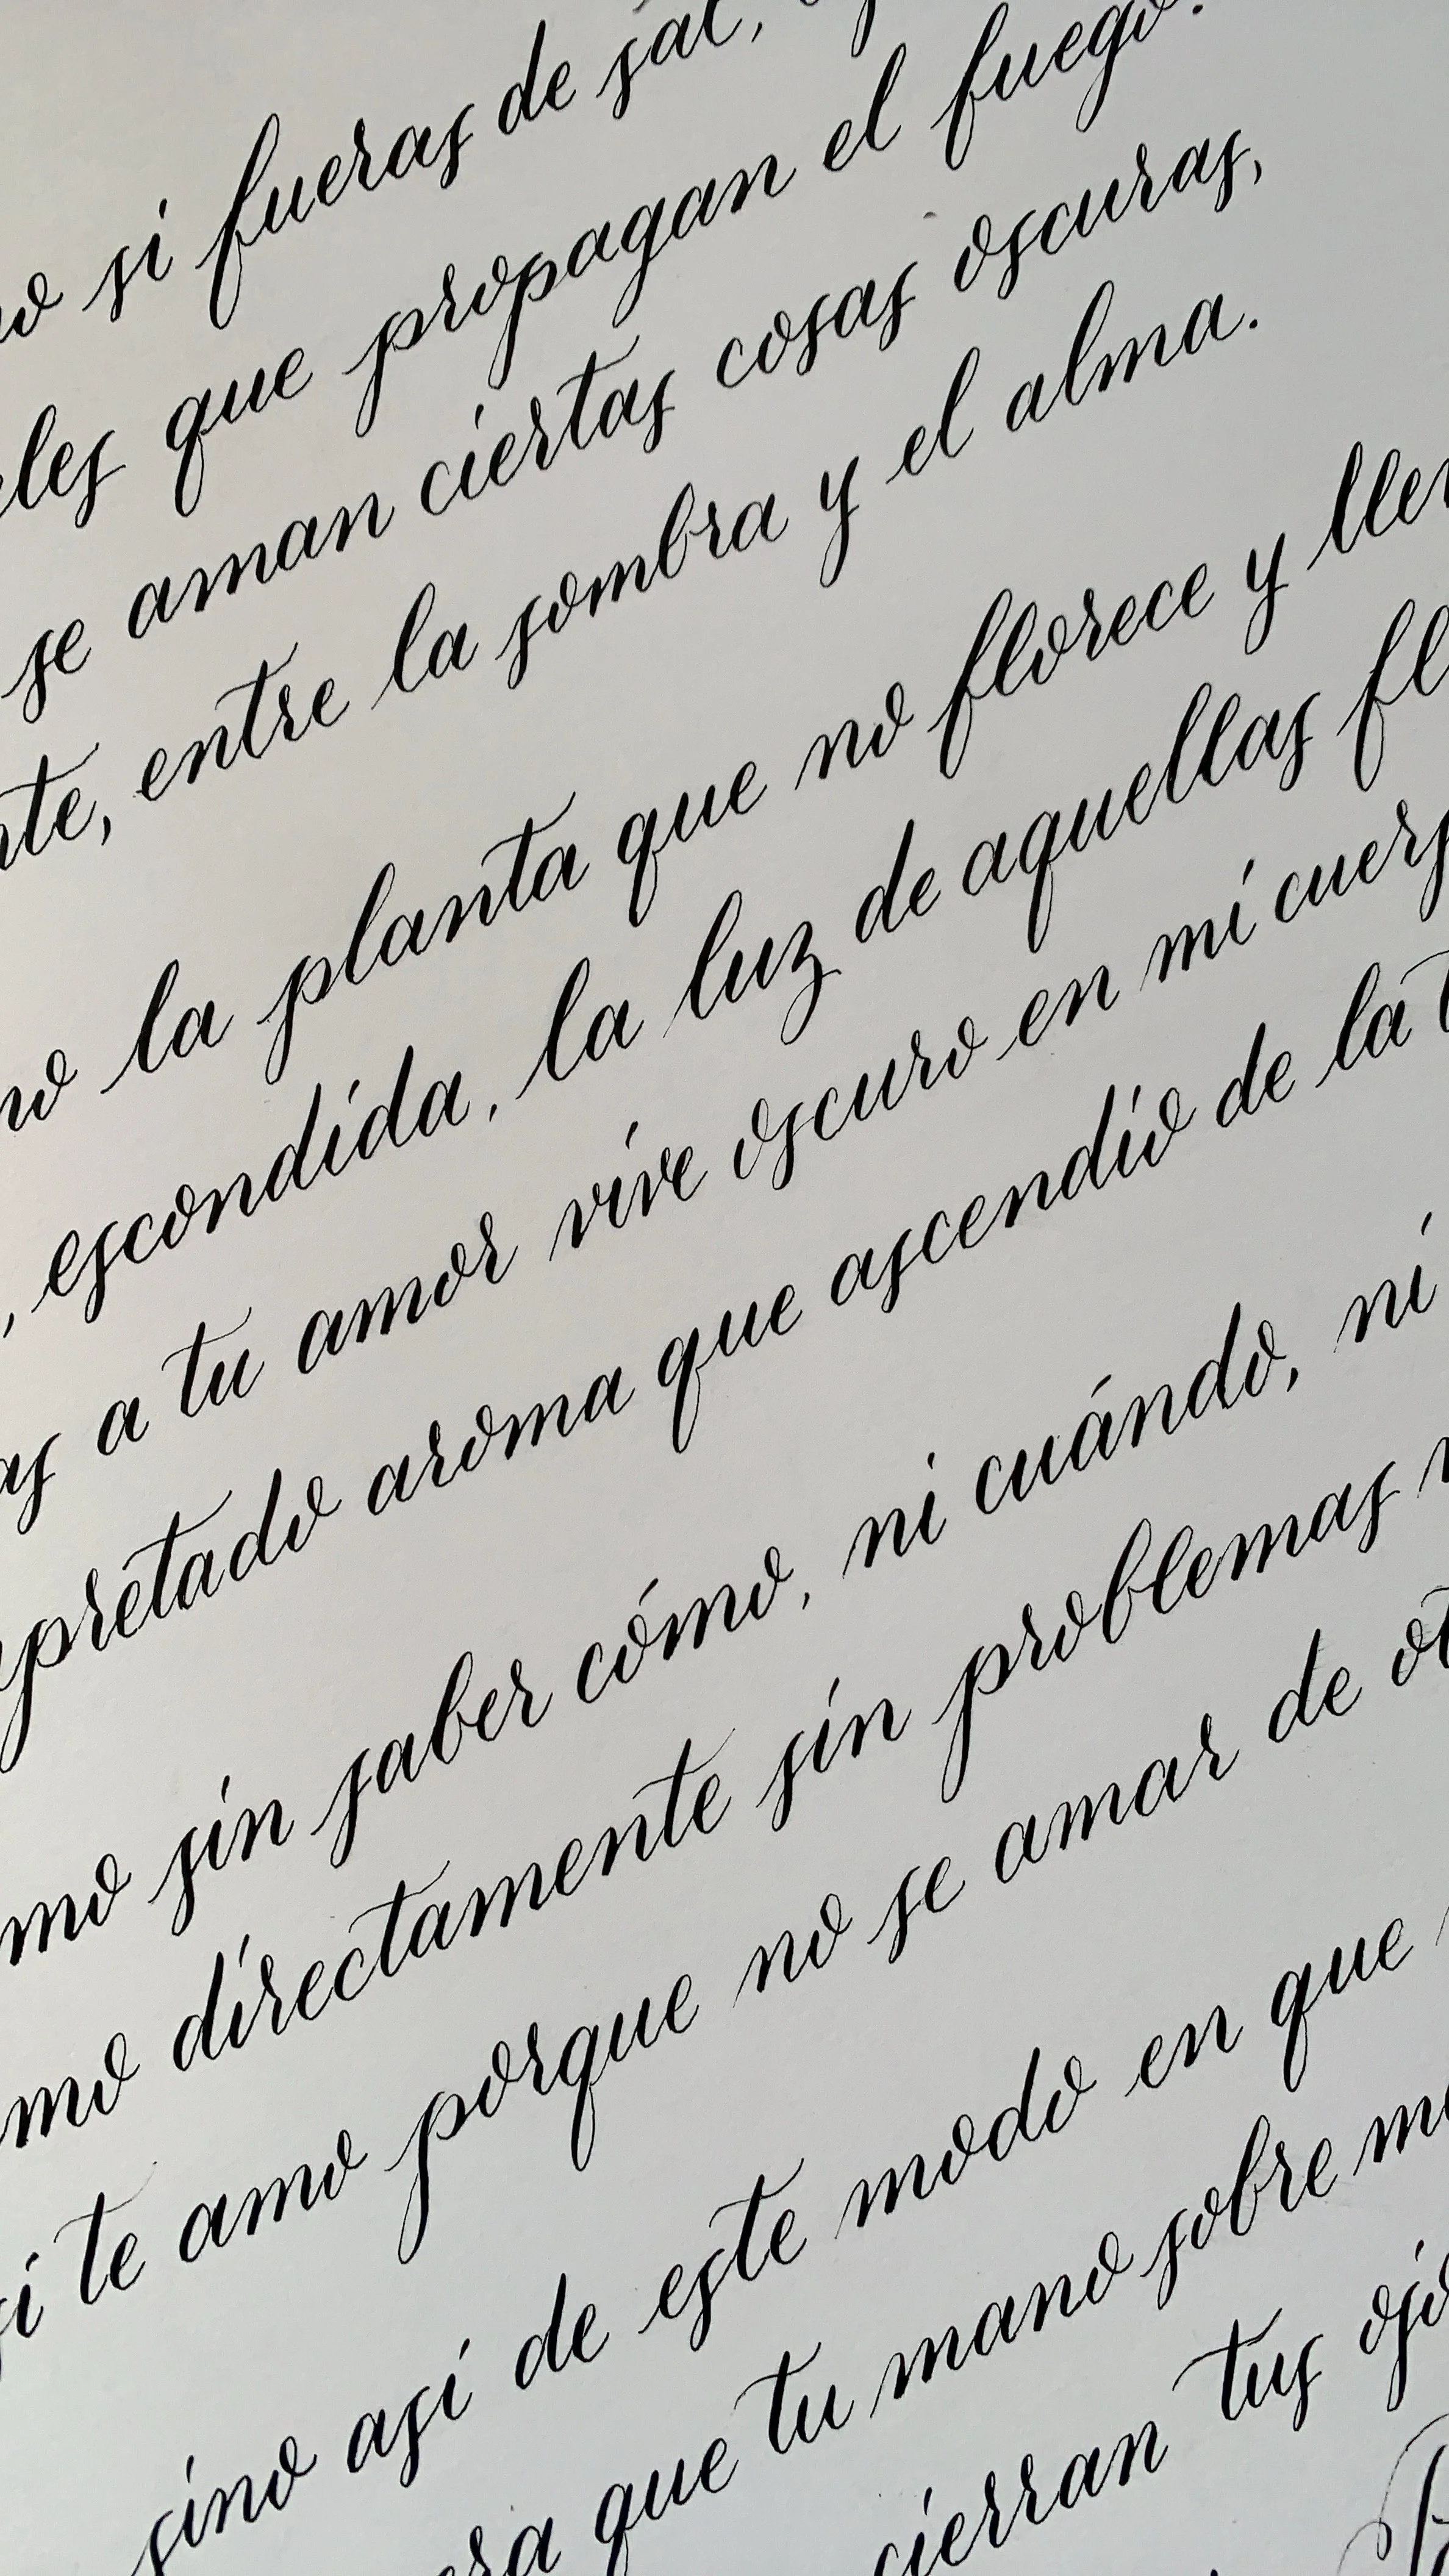 si fueras de sal,
que propagan el fuego.
se aman ciertas cosas oscuras,
entre la sombra y el alma.
la planta que no florece y
escondida, la luz de aquellas
a tu amor vive oscuro en mi
aroma que ascendio de la
sin saber cómo, ni cuándo, ni
directamente sin problemas
te amo porque no se amar de
sino asi de este modo en que
que tu mano sobre
cierran tus